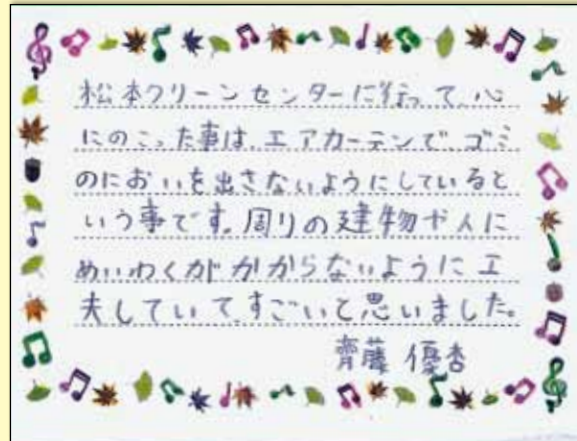 松本クリーンセンターに行って、心
にのこった事は、エアカーテンで、ゴミ
のにおいを出さないようにしていると
いう事です。周りの建物や人に
めいわくがかからないように工
夫していて、すごいと思いました。
齊藤 優杏